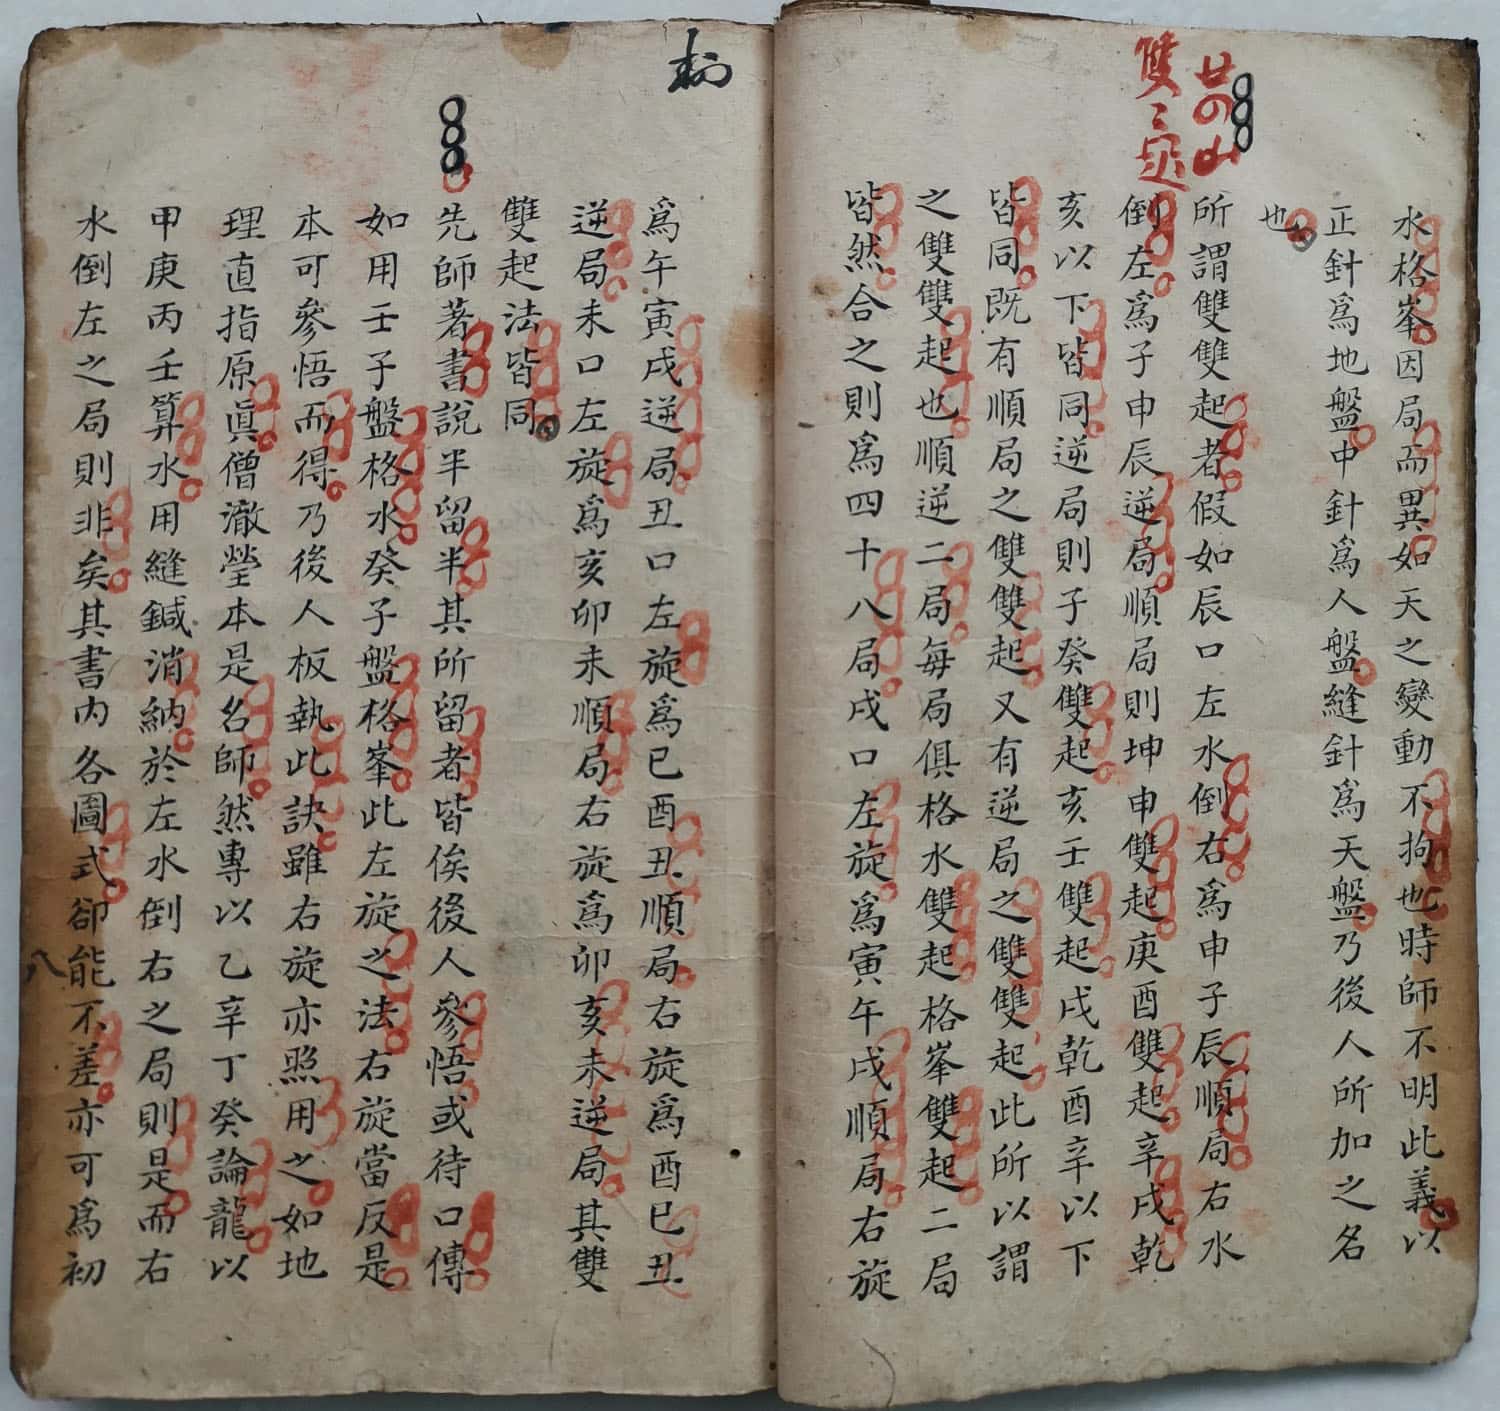 廿四山
雙雙起
水格峯因局而異如天之變動不拘也時師不明此義以
正針爲地盤中針爲人盤縫針爲天盤乃後人所加之名
也
所謂雙雙起者假如辰口左水倒右爲申子辰順局右水
倒左爲子申辰逆局順局則坤申雙起庚酉雙起辛戌乾
亥以下皆同逆局則子癸雙起亥壬雙起戌乾酉辛以下
皆同既有順局之雙雙起又有逆局之雙雙起此所以謂
之雙雙起也順逆二局每局俱格水雙起格峯雙起二局
皆然合之則爲四十八局戌口左旋爲寅午戌順局右旋
爲午寅戌逆局丑口左旋爲巳酉丑順局右旋爲酉巳丑
逆局未口左旋爲亥卯未順局右旋爲卯亥未逆局其雙
雙起法皆同
先師著書說半留半其所留者皆俟後人參悟或待口傳
如用壬子盤格水癸子盤格峯此左旋之法右旋當反是
本可參悟而得乃後人板執此訣雖右旋亦照用之如地
理直指原眞僧澈瑩本是名師然專以乙辛丁癸論龍以
甲庚丙壬算水用縫鍼消納於左水倒右之局則是而右
水倒左之局則非矣其書内各圖式卻能不差亦可爲初
八